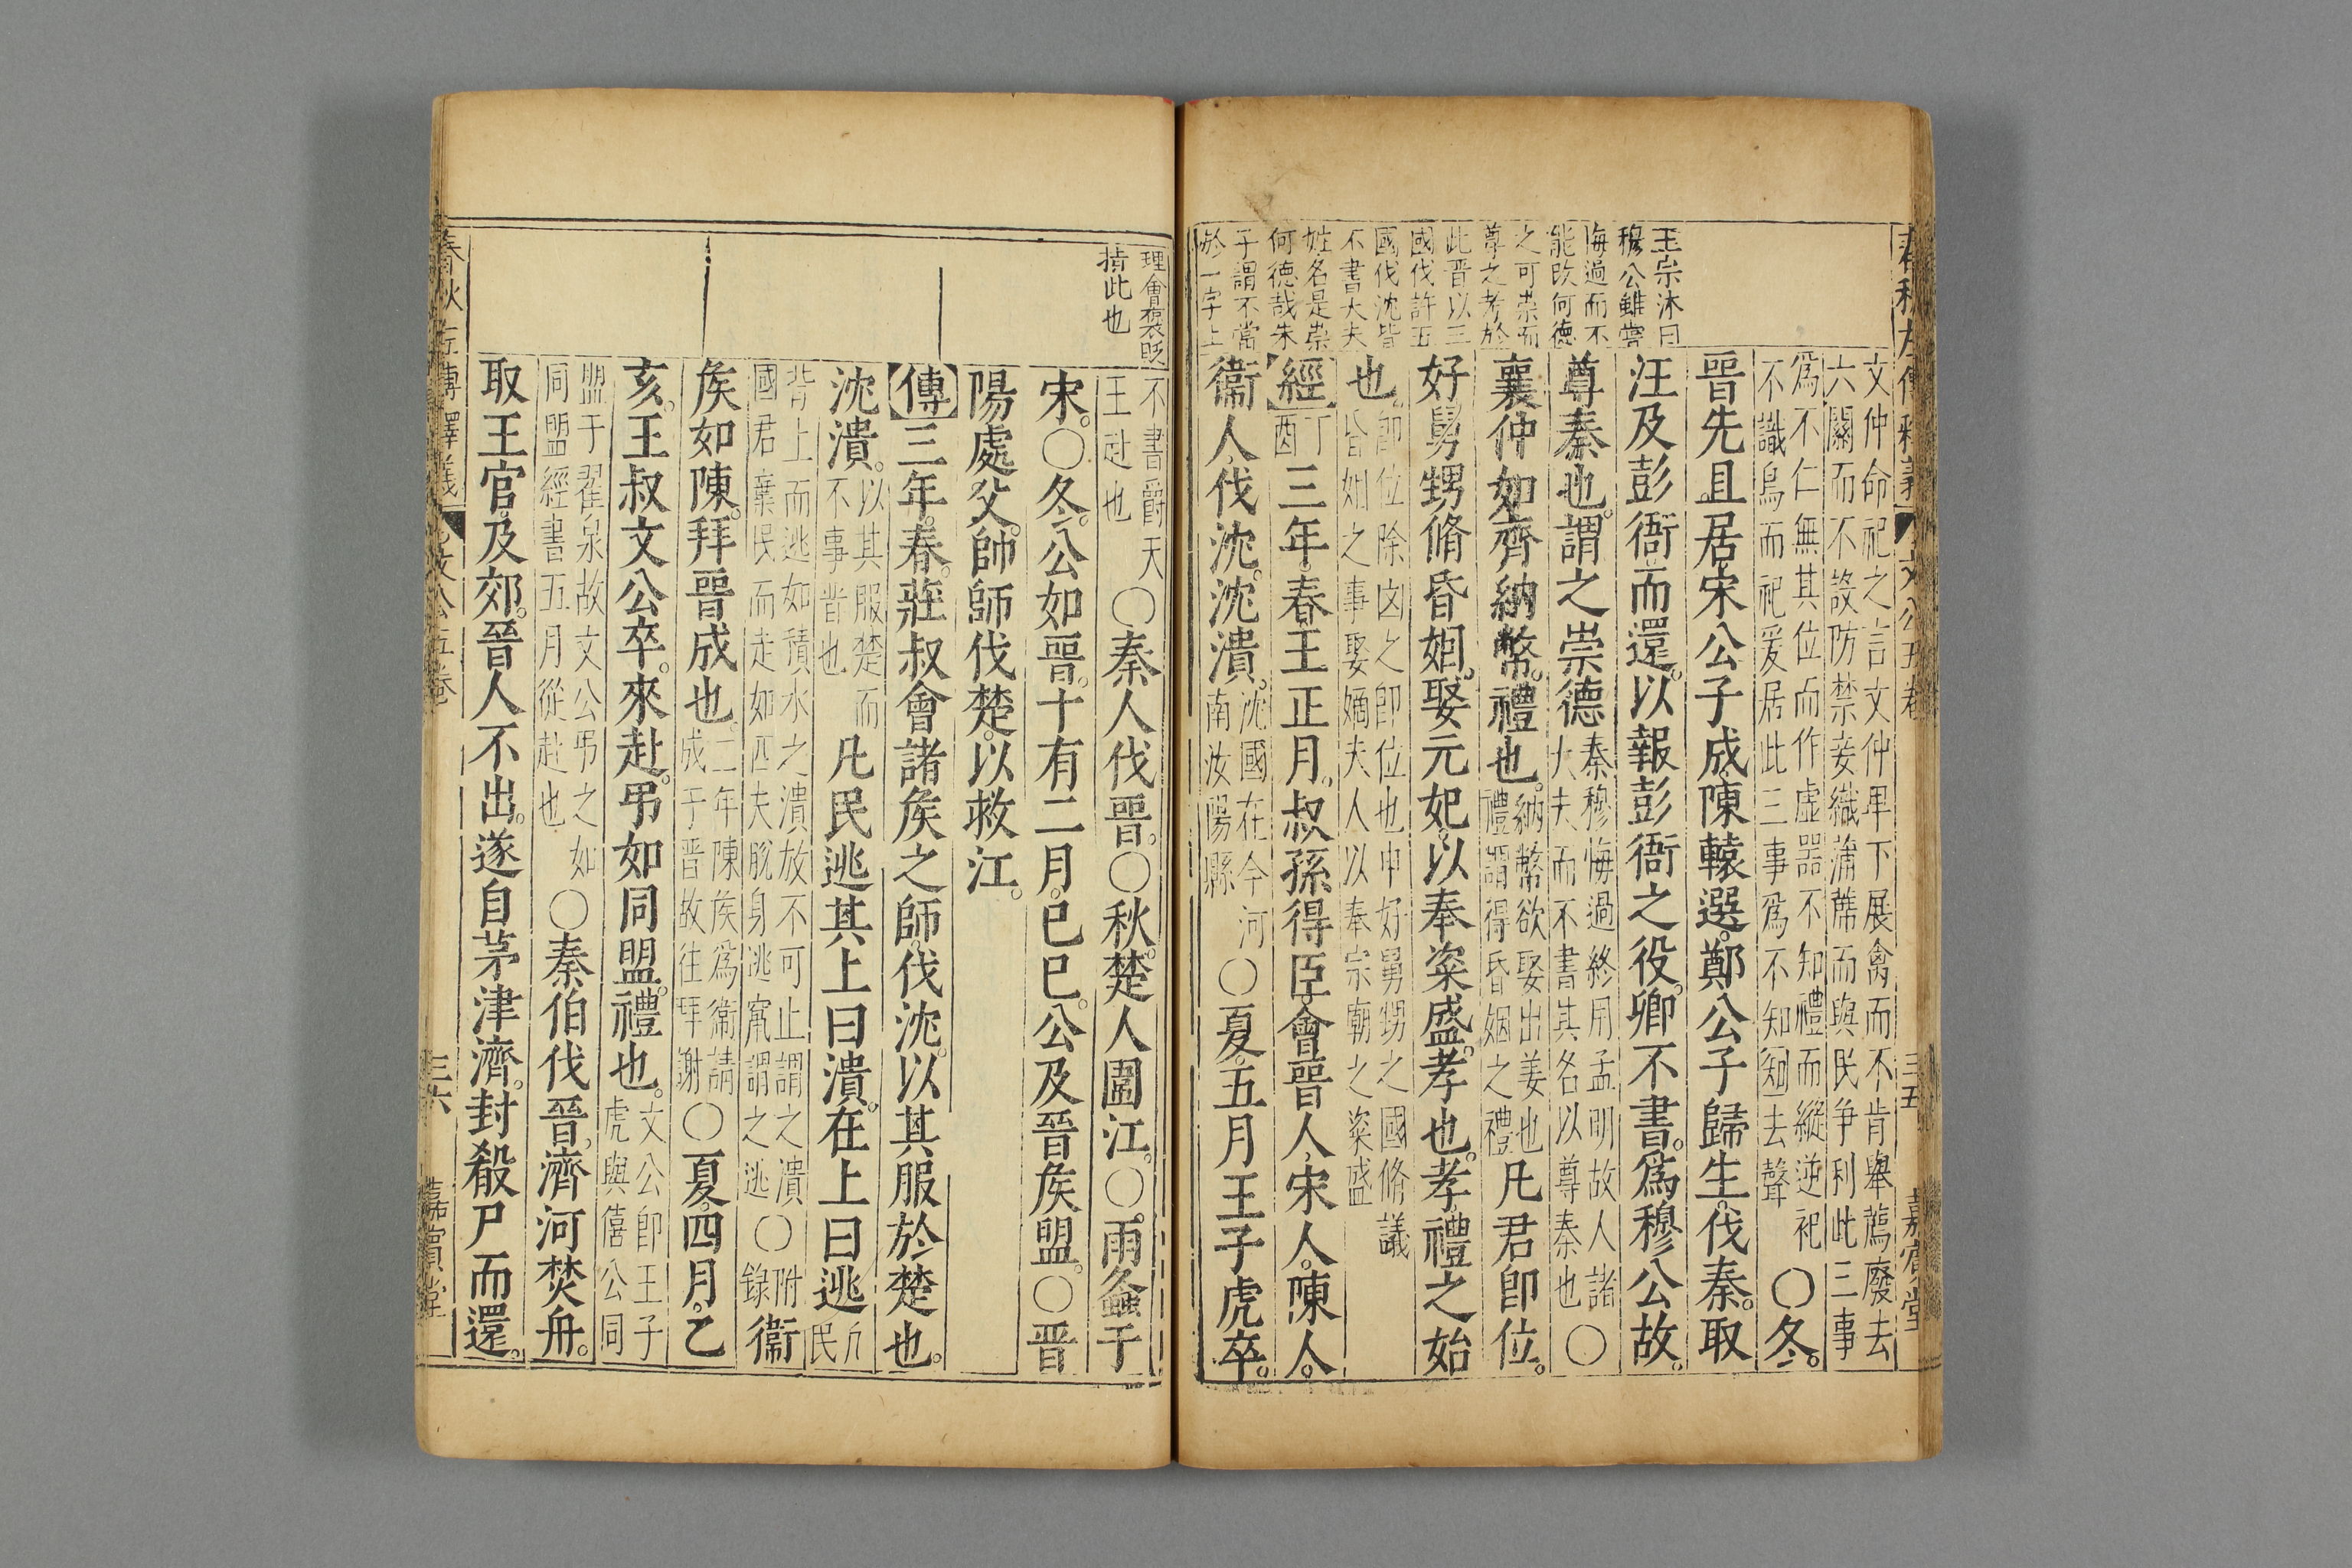 春秋左傳釋義 文公五卷 三五 嘉賓堂
王宗沐曰
穆公雖嘗
悔過而不
能改何德
之可崇而
尊之考於
此晋以三
國伐許五
國伐沈皆
不書大夫
姓名是崇
何德哉朱
子謂不當
於一字上
文仲命祀之言文仲卑下展禽而不肯舉薦廢去
六關而不設防禁妾織蒲蓆而與民争利此三事
爲不仁無其位而作虛器不知禮而縱逆祀
不識鳥而祀爰居此三事爲不知知去聲
〇冬。
晋先且居宋公子成陳轅選鄭公子歸生。伐秦。取
汪及彭衙而還。以報彭衙之役。卿不書。爲穆公故。
尊秦也。謂之崇德秦穆悔過終用孟明故人諸大夫而不書其名以尊秦也〇
襄仲如齊納幣禮也。納幣欲娶出姜也禮謂得昏姻之禮凡君即位。
好舅甥脩昏姻。娶元妃。以奉粢盛。孝也。孝禮之始
也。即位除凶之即位也申好舅甥之國脩議昏姻之事娶嫡夫人以奉宗廟之粢盛
經丁酉三年春王正月。叔孫得臣會晋人宋人。陳人。
衞人伐沈。沈潰。沈國在今河南汝陽縣〇夏。五月王子虎卒。
理會褒貶
指此也
不書爵天王赴也〇秦人伐晋。〇秋。楚人圍江。〇雨螽于
宋。〇冬。公如晋。十有二月。已巳。公及晉矦盟。〇晋
陽處父。帥師伐楚。以救江。
傳三年。春。莊叔會諸矦之師。伐沈。以其服於楚也。
沈潰。以其服楚而不事晋也凡民逃其上曰潰。在上曰逃凡民
背上而逃如積水之潰故不可止謂之潰國君棄民而走如匹夫脫身逃竄謂之逃〇附錄衞
矦如陳。拜晋成也。二年陳矦爲衞請成于晋故往拜謝〇夏。四月。乙
亥。王叔文公卒。來赴。弔如同盟。禮也。文公即王子虎與僖公同
盟于翟泉故文公弔之如同盟經書五月從赴也〇秦伯伐晉。濟河焚舟。
取王官。及郊。晉人不出。遂自茅津濟。封殽尸而還。
春秋左傳釋義 文公五卷 三六 嘉賓堂